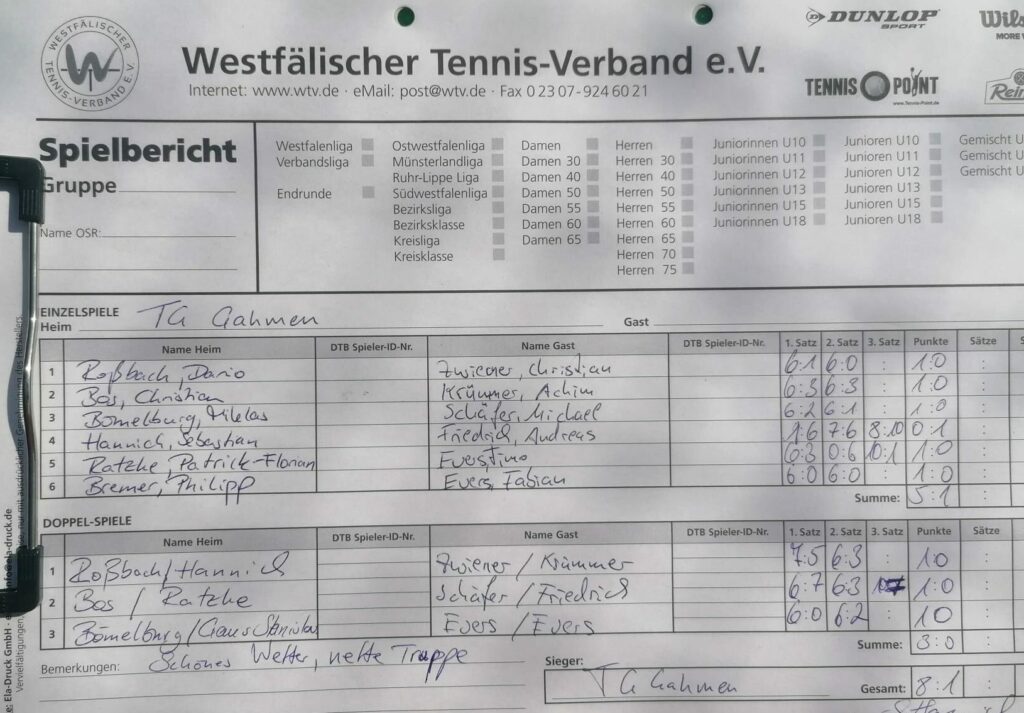 WESTFÄLISCHER TENNIS-VERBAND E.V.
Westfälischer Tennis-Verband e.V.
Internet: www.wtv.de · eMail: post@wtv.de · Fax 0 23 07-924 60 21
DUNLOP SPORT
TENNIS POINT
www.Tennis-Point.de
Spielbericht
Gruppe
Name OSR:
Westfalenliga
Verbandsliga
Endrunde
Ostwestfalenliga
Münsterlandliga
Ruhr-Lippe Liga
Südwestfalenliga
Bezirksliga
Bezirksklasse
Kreisliga
Kreisklasse
Damen
Damen 30
Damen 40
Damen 50
Damen 55
Damen 60
Damen 65
Herren
Herren 30
Herren 40
Herren 50
Herren 55
Herren 60
Herren 65
Herren 70
Herren 75
Juniorinnen U10
Juniorinnen U11
Juniorinnen U12
Juniorinnen U13
Juniorinnen U15
Juniorinnen U18
Junioren U10
Junioren U11
Junioren U12
Junioren U13
Junioren U15
Junioren U18
Gemischt
Gemischt
Gemischt
EINZELSPIELE
Heim TG Gahmen Gast
Name Heim DTB Spieler-ID-Nr. Name Gast DTB Spieler-ID-Nr. 1. Satz 2. Satz 3. Satz Punkte Sätze
1 Roßbach, Dario Zwiener, Christian 6:1 6:0 : 1:0 :
2 Bos, Christian Krümmer, Achim 6:3 6:3 : 1:0 :
3 Bömelburg, Niklas Schäfer, Michael 6:2 6:1 : 1:0 :
4 Hannich, Sebastian Friedrich, Andreas 1:6 7:6 8:10 0:1 :
5 Ratzke, Patrick-Florian Evers, Tino 6:3 0:6 10:1 1:0 :
6 Bremer, Philipp Evers, Fabian 6:0 6:0 : 1:0 :
Summe: 5:1 :
DOPPEL-SPIELE
Name Heim DTB Spieler-ID-Nr. Name Gast DTB Spieler-ID-Nr. 1. Satz 2. Satz 3. Satz Punkte Sätze
1 Roßbach/Hannich Zwiener/Krämmer 7:5 6:3 : 1:0 :
2 Bos / Ratzke Schäfer/Friedrich 6:7 6:3 1:0 :
3 Bömelburg/ Evers/Evers 6:0 6:2 : 1:0 :
Summe: 3:0 :
Bemerkungen: Schönes Wetter, nette Truppe
Sieger: TG Gahmen Gesamt: 8:1 :
Ela-Druck GmbH